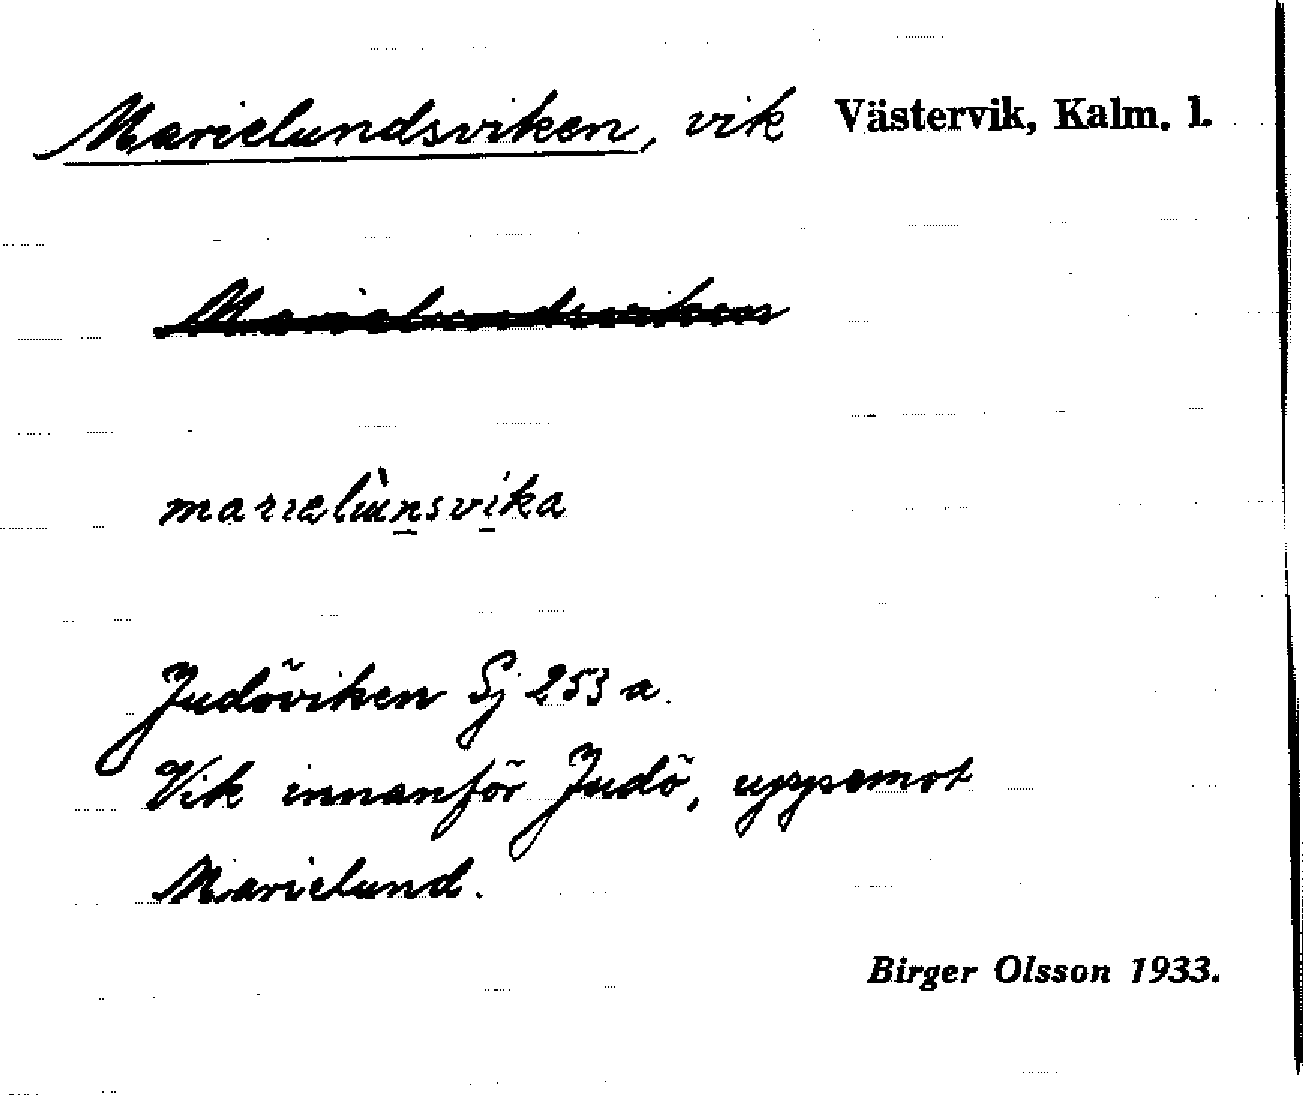 Marielundsviken, vik Västervik, Kalm. l.
Marielundsviken
marielùnsvika
Judöviken Sj 253 a.
Vik innanför Judö, uppemot
Marielund.
Birger Olsson 1933.